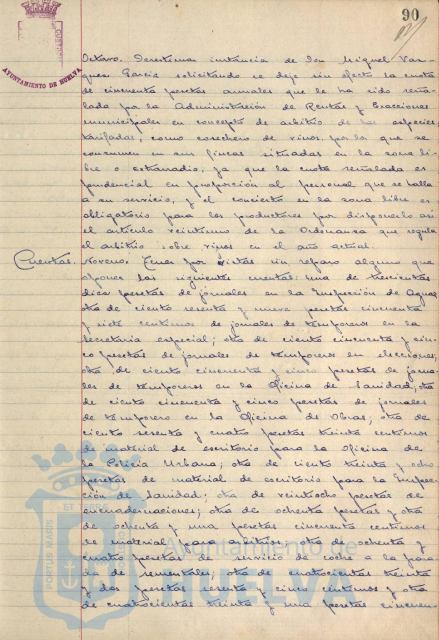 90
AYUNTAMIENTO DE HUELVA
Octavo. Desestima instancia de Don Miguel Vaz-
quez Garcia solicitando se deje sin efecto la cuota
de cincuenta pesetas anuales que le ha sido seña-
lada por la Administración de Rentas y Exacciones
municipales en concepto de arbitrio de las especies
tarifadas, como cosechero de vinos, por la que se
consumen en sus fincas situadas en la zona li-
bre o extrarradio, ya que la cuota señalada es
prudencial en proporción al personal que se halla
a su servicio, y el concierto en la zona libre es
obligatorio para los productores por disponerlo asi
el articulo veintiuno de la Ordenanza que regula
el arbitrio sobre vinos en el año actual.
Cuentas. Noveno. Tener por vistas sin reparo alguno que
oponer las siguientes cuentas: una de trescientas
diez pesetas de jornales en la Inspección de Aguas,
otra de ciento sesenta y nueve pesetas cincuenta
y siete centimos de jornales de temporeros en la
Secretaria especial; otra de ciento cincuenta y cin-
co pesetas de jornales de temporeros en elecciones;
otra de ciento cincuenta y cinco pesetas de jorna-
les de temporeros en la Oficina de Sanidad; otra
de ciento cincuenta y cinco pesetas de jornales
de temporero en la Oficina de Obras; otra de
ciento sesenta y cuatro pesetas treinta centimos
de material de escritorio para la Oficina de
la Policia Urbana; otra de ciento treinta y ocho
pesetas de material de escritorio para la Inspec-
ción de Sanidad; otra de veintiocho pesetas de
encuadernaciones; otra de ochenta pesetas y otra
de ochenta y una pesetas cincuenta centimos
de material para arbitrios; otra de ochenta y
cuatro pesetas de servicio de coche a la para-
da de sementales; otra de cuatrocientas treinta
y dos pesetas sesenta y cinco centimos y otra
de cuatrocientas treinta y una pesetas cincuen-
PORTUS MARIS ET
Ayuntamiento de
HUELVA